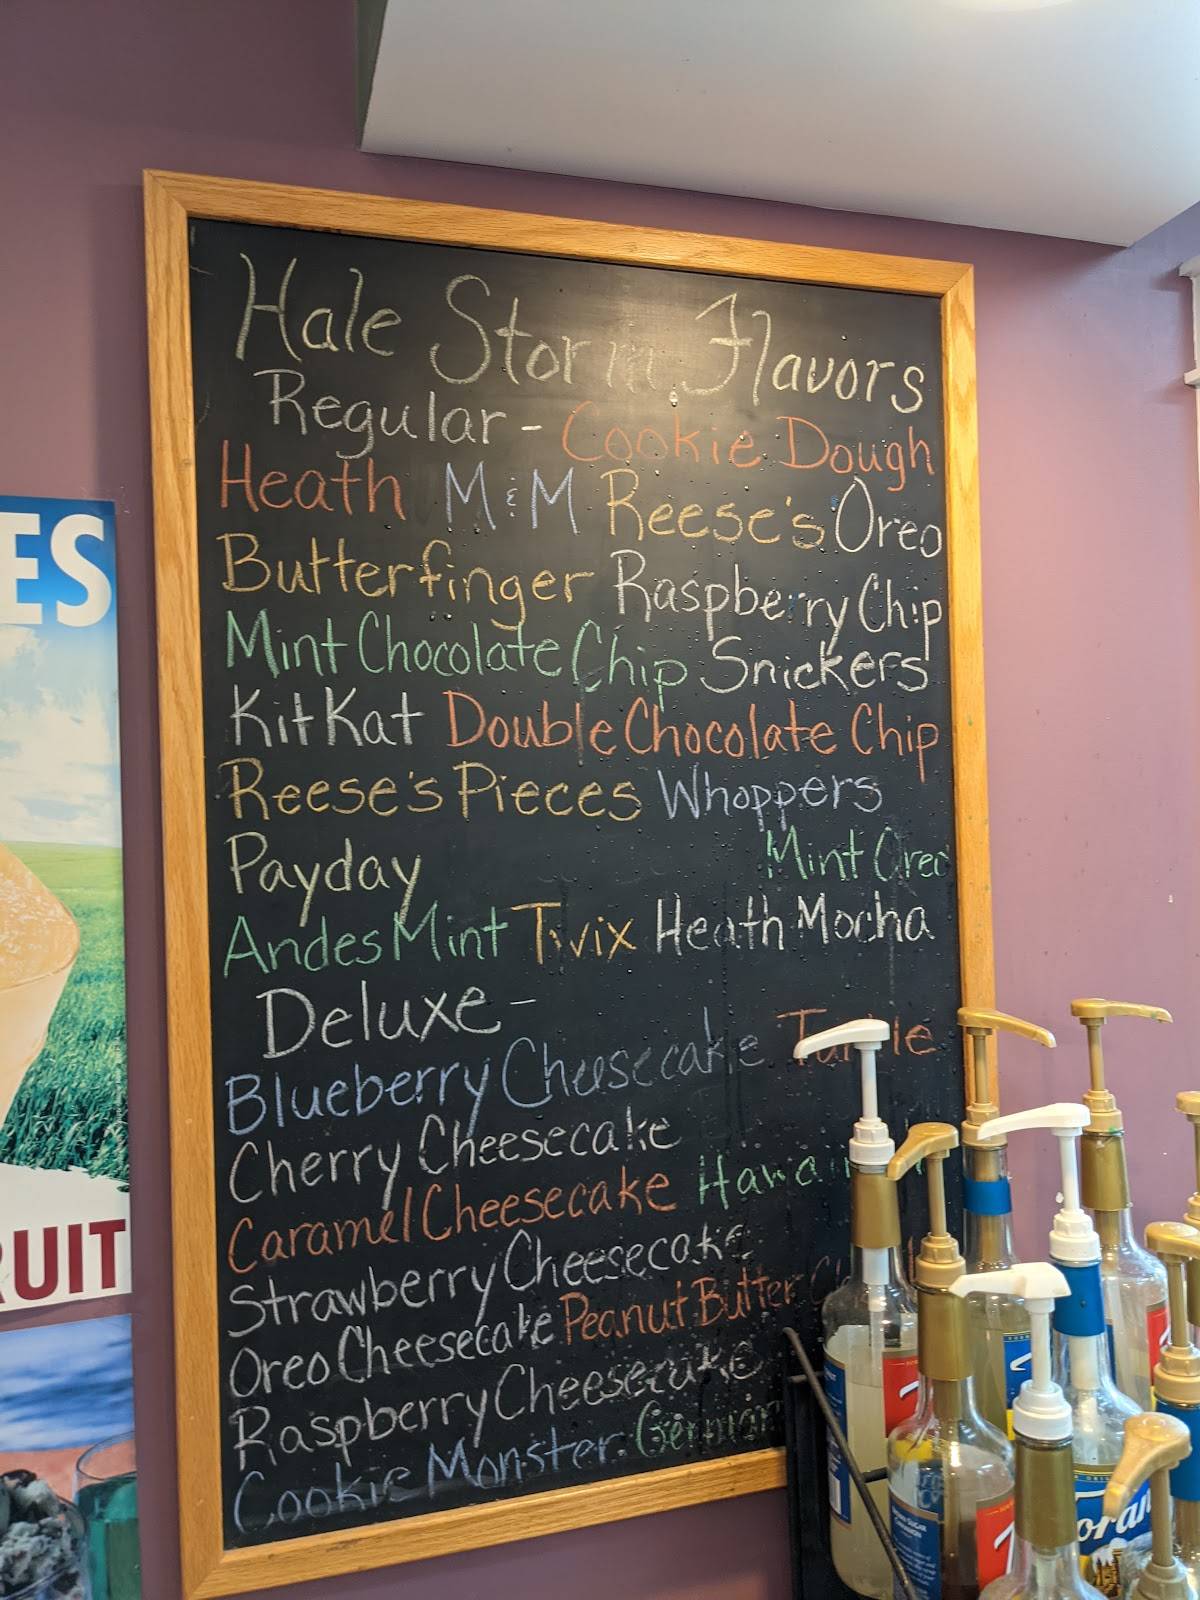 Hale Storm Flavors
Regular - Cookie Dough
Heath M&M Reese's Oreo
Butterfinger Raspberry Chip
Mint Chocolate Chip Snickers
KitKat Double Chocolate Chip
Reese's Pieces Whoppers
Payday Mint Oreo
Andes Mint Twix Heath Mocha
Deluxe -
Blueberry Cheesecake Turtle
Cherry Cheesecake
Caramel Cheesecake Hawaiian
Strawberry Cheesecake
Oreo Cheesecake Peanut Butter
Raspberry Cheesecake
Cookie Monster German
ES
RUIT